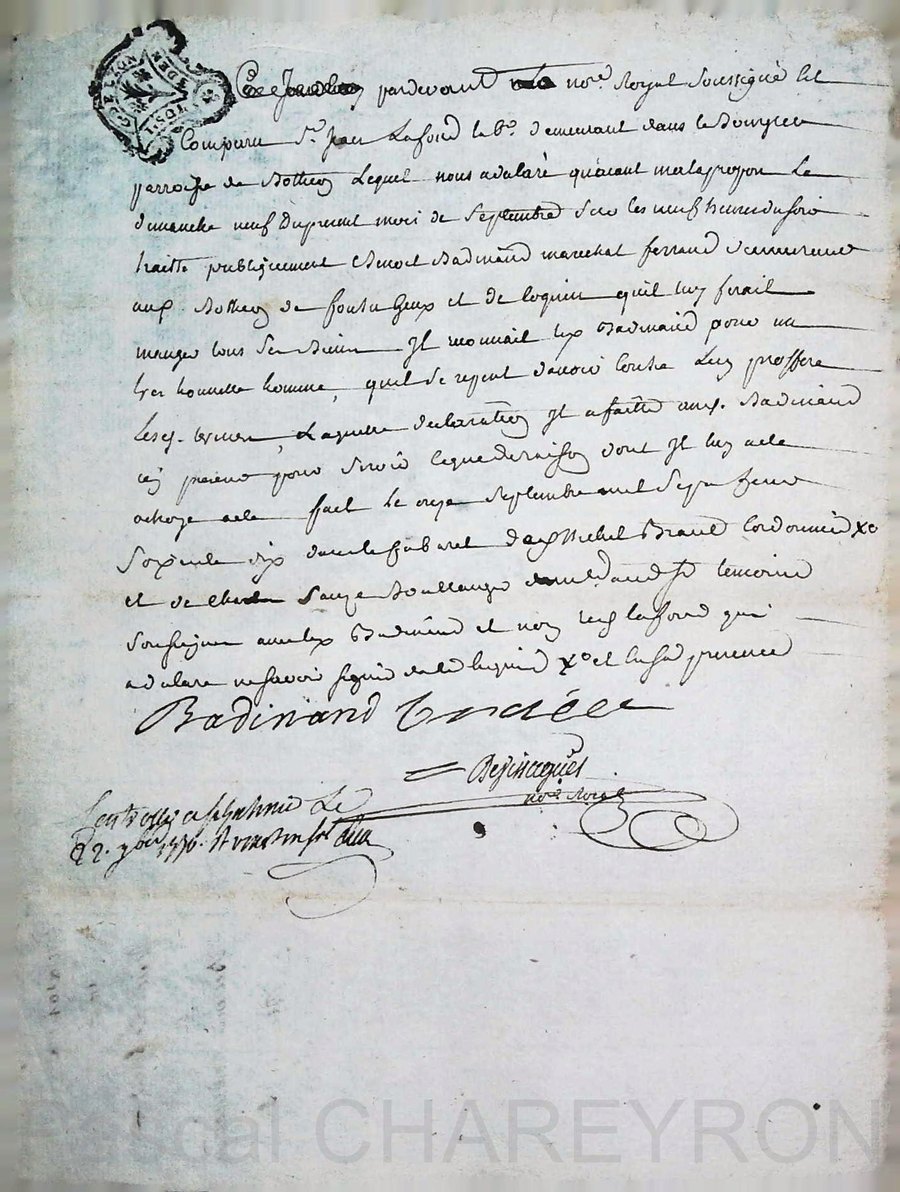 G. DE LYON
pardevant no.re Royal Soussigné est
Comparu S.r Jean Lafond lab.r demeurant dans le Bourg et
parroisse de Botheon Lequel nous a declaré qu'aiant mal apropos Le
dimanche neuf du present mois de Septembre Sur les neuf heures du soir
traitté publiquement Benoit Badinand marechal ferrand demeurant
aud. Botheon de foutu Geux et de Coquin qu'il luy ferait
manger tous Ses Biens Il reconnait led Badinand pour un
tres honnette homme, quil Se repent davoir Contre Luy proffere
Lesd. termes, Laquelle declaration Il a faitte aud. Badinand
cy present pour Servir Ce que de raison dont Il luy a ete
octroye acte fait Le onze Septembre mil Sept Cent
Soixente dix dans le Cabaret de Michel Cordonnier
et de Sauze Boullanger dud. lieu temoins
Soussignes avec led Badinand et non led Lafond qui
a declaré ne Savoir signer de ce Enquis et en Sa presence
Badinand
no.re Royal
Controllé a Le
22. 7bre 177